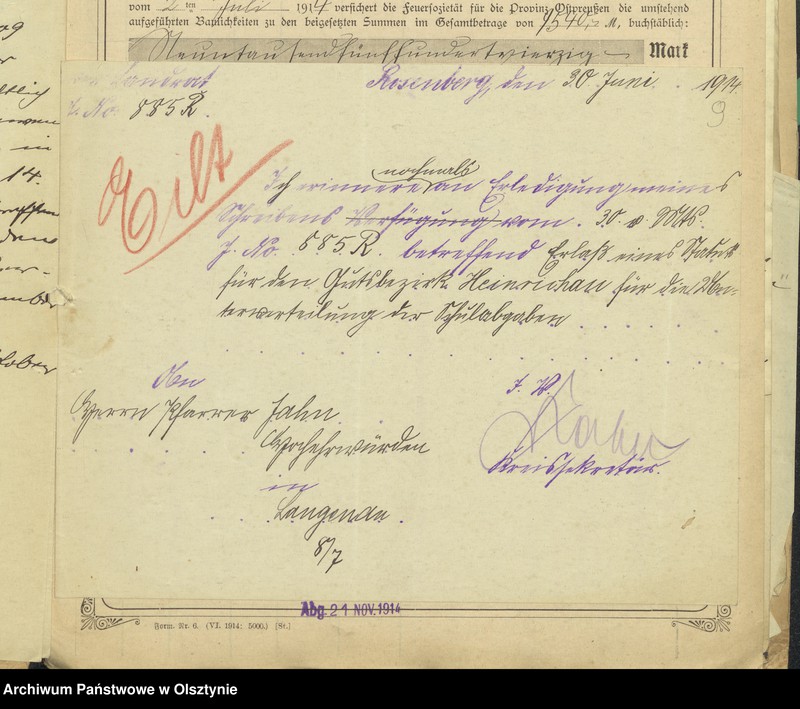 vom 2 ten Juli 1914 versichert die Feuersozietät für die Provinz Ostpreußen die umstehend
aufgeführten Baulichkeiten zu den beigesetzten Summen im Gesamtbetrage von 9540,- M, buchstäblich:
Neuntausendfünfhundertvierzig Mark
Landrat
J. No. 885 R.
Rosenberg, den 30 Juni. 1914.
9
Eilt
nochmals
Ich erinnere an Erledigung meines
Schreibens Verfügung vom. 30 v. Mts.
J. No. 885 R. betreffend Erlaß eines Statuts
für den Gutsbezirk Heinrichau für die Un-
terverteilung der Schulabgaben
An
Herrn Pfarrer Jahn
Hochehrwürden
in
Langenau.
8/7
J. V.
Kreissekretär.
Abg. 21 NOV. 1914
Form. Nr. 6. (VI. 1914: 5000.) [St.]
Archiwum Państwowe w Olsztynie